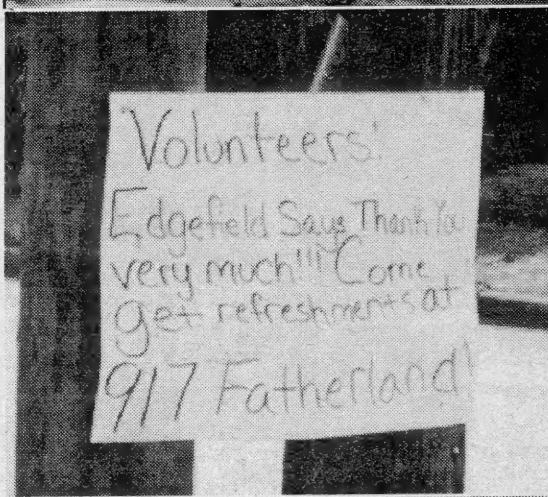 Volunteers!
Edgefield Says Thank You
very much!!! Come
get refreshments at
917 Fatherland!